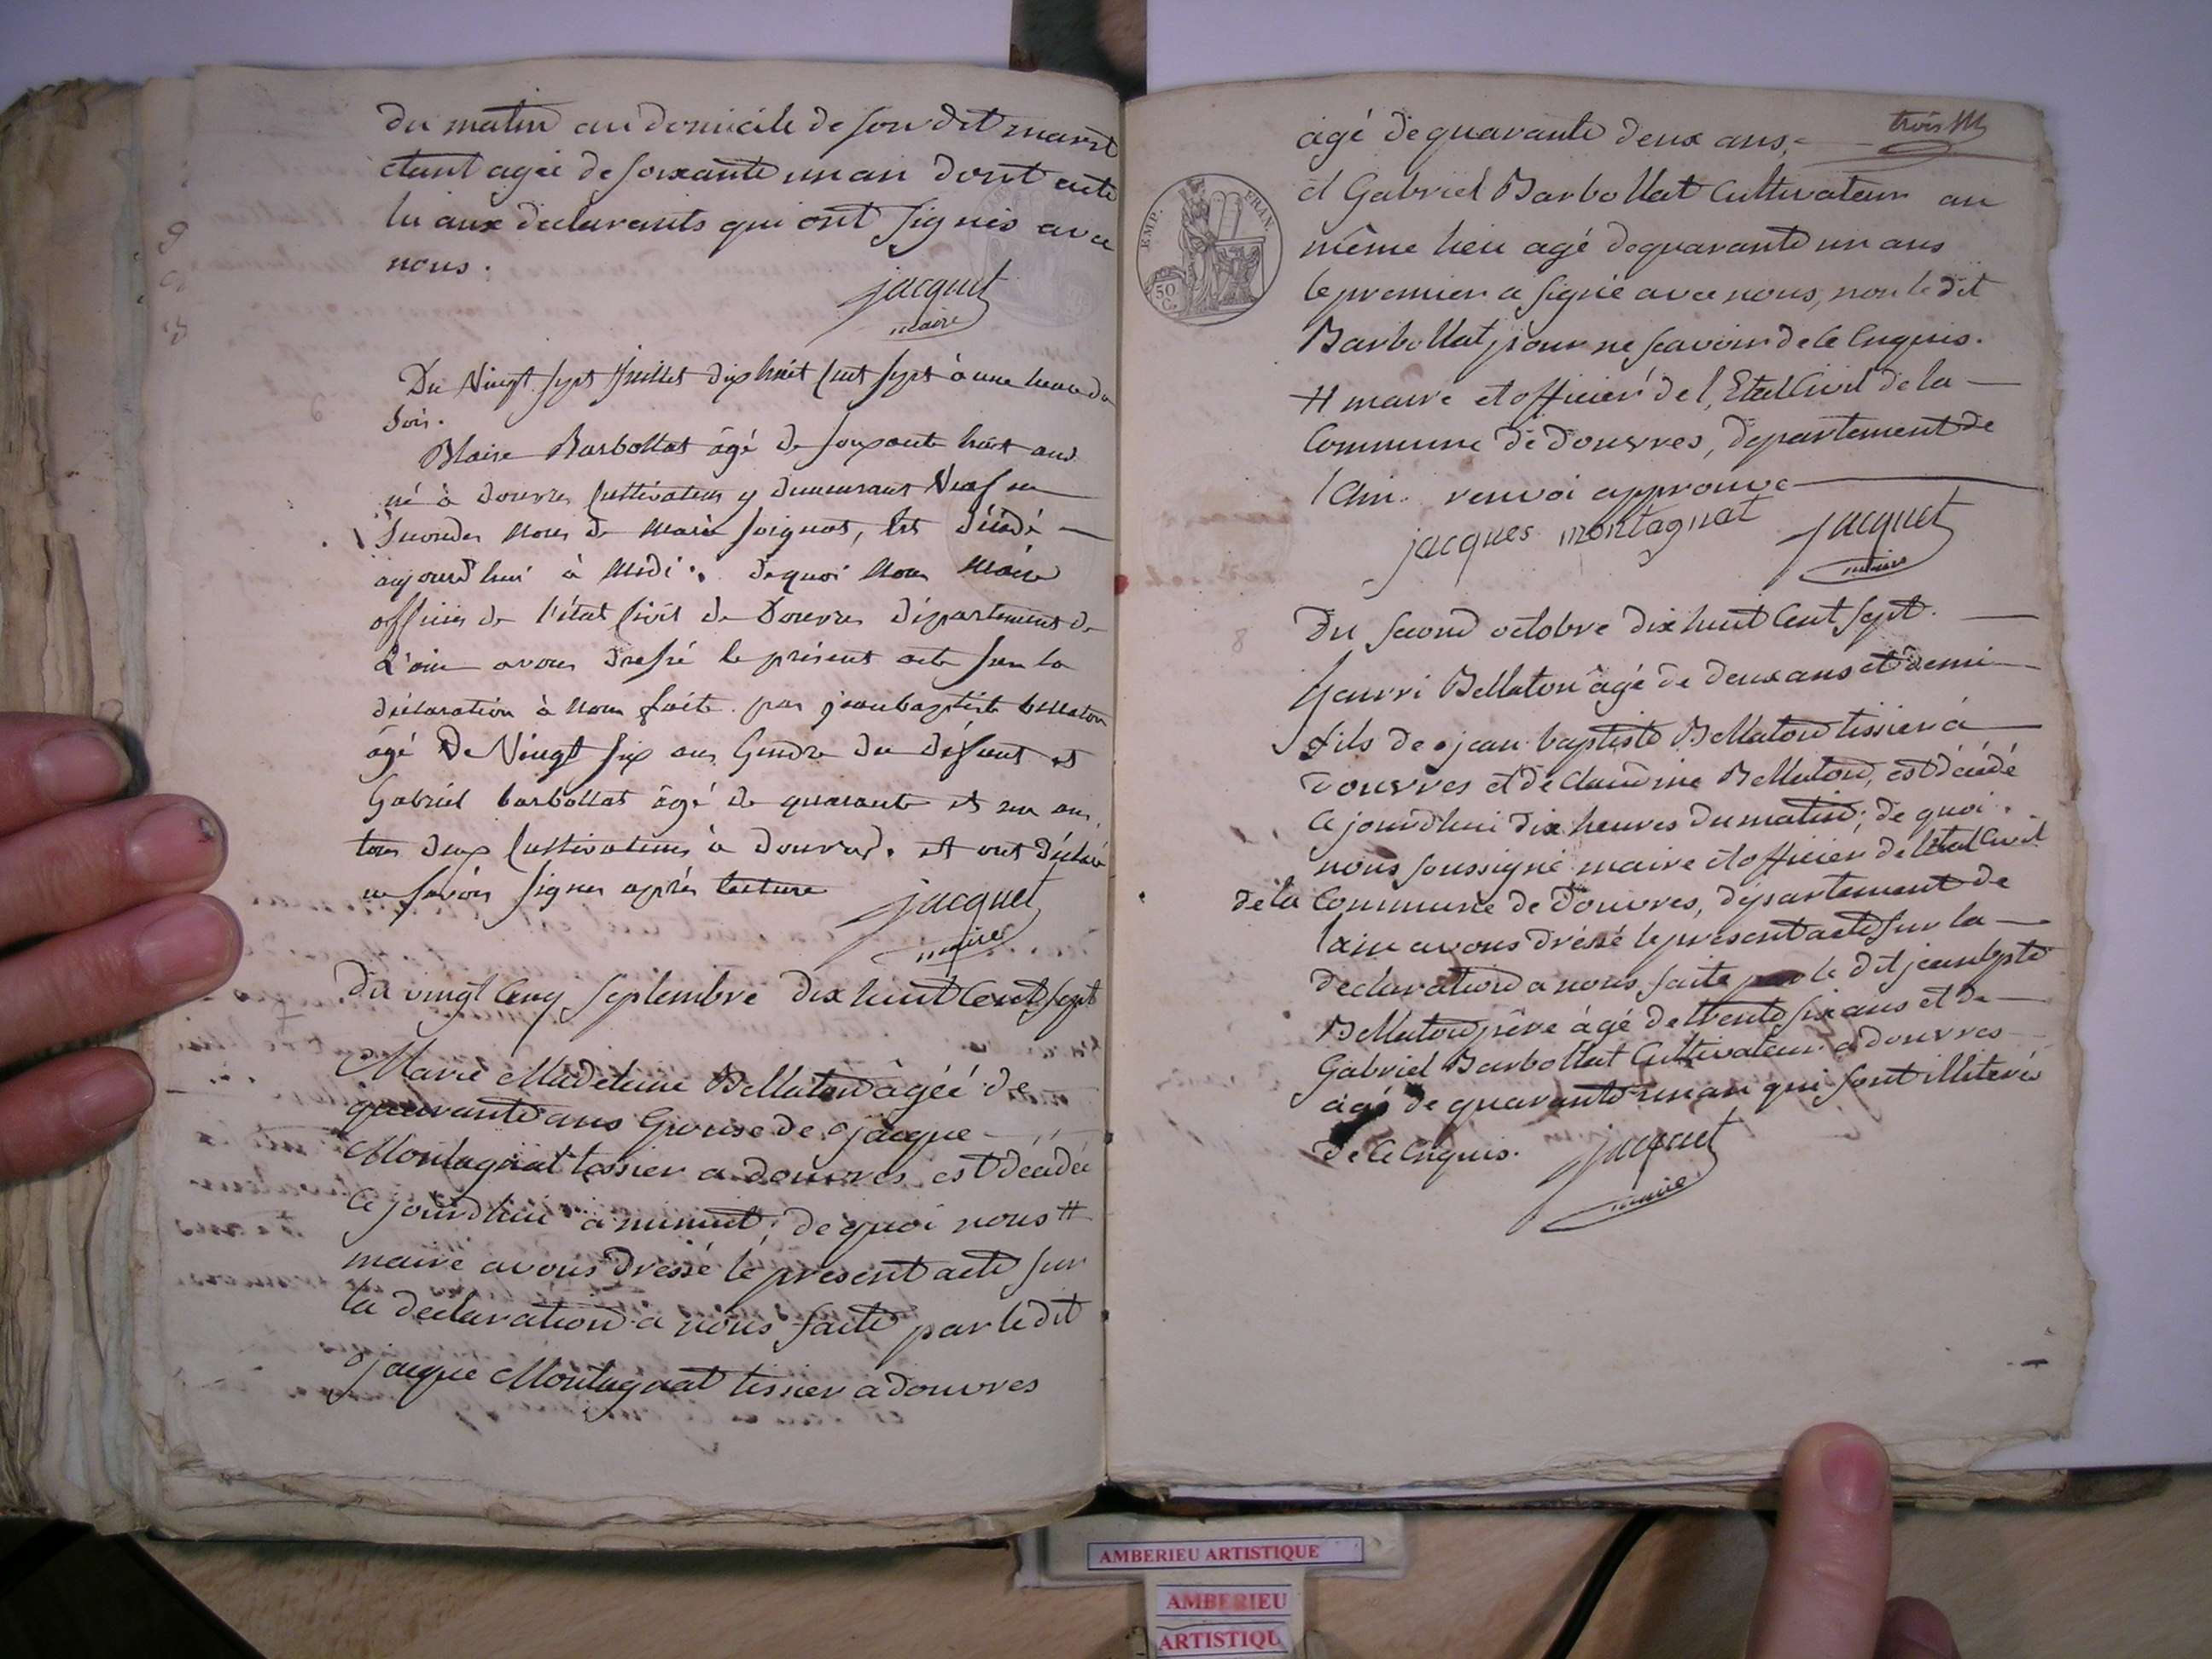 du matin au domicile de son dit mari
étant agée de soixante un an dont acte
lu aux declarants qui ont signés avec
nous.
jacquet
maire
Du Vingt sept juillet dix huit cent sept à une heure du
soir.
Blaise Barbollat âgé de soixante huit ans
né à douvres cultivateur y demeurant Veuf en
secondes noces de marie soignat, est décédé
aujourd'hui à midi. de quoi nous maire
officier de l'état civil de Douvres département de
L'ain avons dressé le présent acte sur la
déclaration à nous faite par jean baptiste bellaton
âgé De Vingt six ans Gendre du défunt et
Gabriel barbollat âgé de quarante et un ans,
tous deux cultivateurs à douvres. et ont déclaré
ne savoir signer après lecture
jacquet
maire
du vingt cinq septembre dix huit Cent sept
Marie Madeleine Bellaton âgéé de
quarante ans Epouse de jacque
Montagnat tissier a douvres est décédée
Ce jourdhui à minuit, de quoi nous #
maire avons dressé le present acte sur
la declaration a nous faite par le dit
jacque Montagnat tissier a douvres
trois
agé de quarante deux ans,
et Gabriel Barbollat Cultivateur au
même lieu agé de quarante un ans
le premier a signé avec nous, non le dit
Barbollat pour ne scavoir de ce Enquis.
# maire et officier de l'Etat Civil de la
Commune de douvres, departement de
l'Ain. renvoi approuvé
jacques montagnat
jacquet
maire
EMP. FRAN.
50 C.
Du second octobre dix huit Cent sept.
8
henri Bellaton âgé de deux ans et demi
fils de jean baptiste Bellaton tissier à
douvres et de Claudine Bellaton, est décédé
Ce jourdhui dix heures du matin; de quoi
nous soussigné maire et officier de letat Civil
de la Commune de douvres, département de
lain avons dréssé le present acte sur la
declaration a nous faite par le dit jean bpte
Bellaton père âgé de trente six ans et de
Gabriel Barbollat Cultivateur a douvres
agé de quarante un an qui sont illiterés
de Ce Enquis.
jacquet
maire
AMBERIEU ARTISTIQUE
AMBERIEU
ARTISTIQU